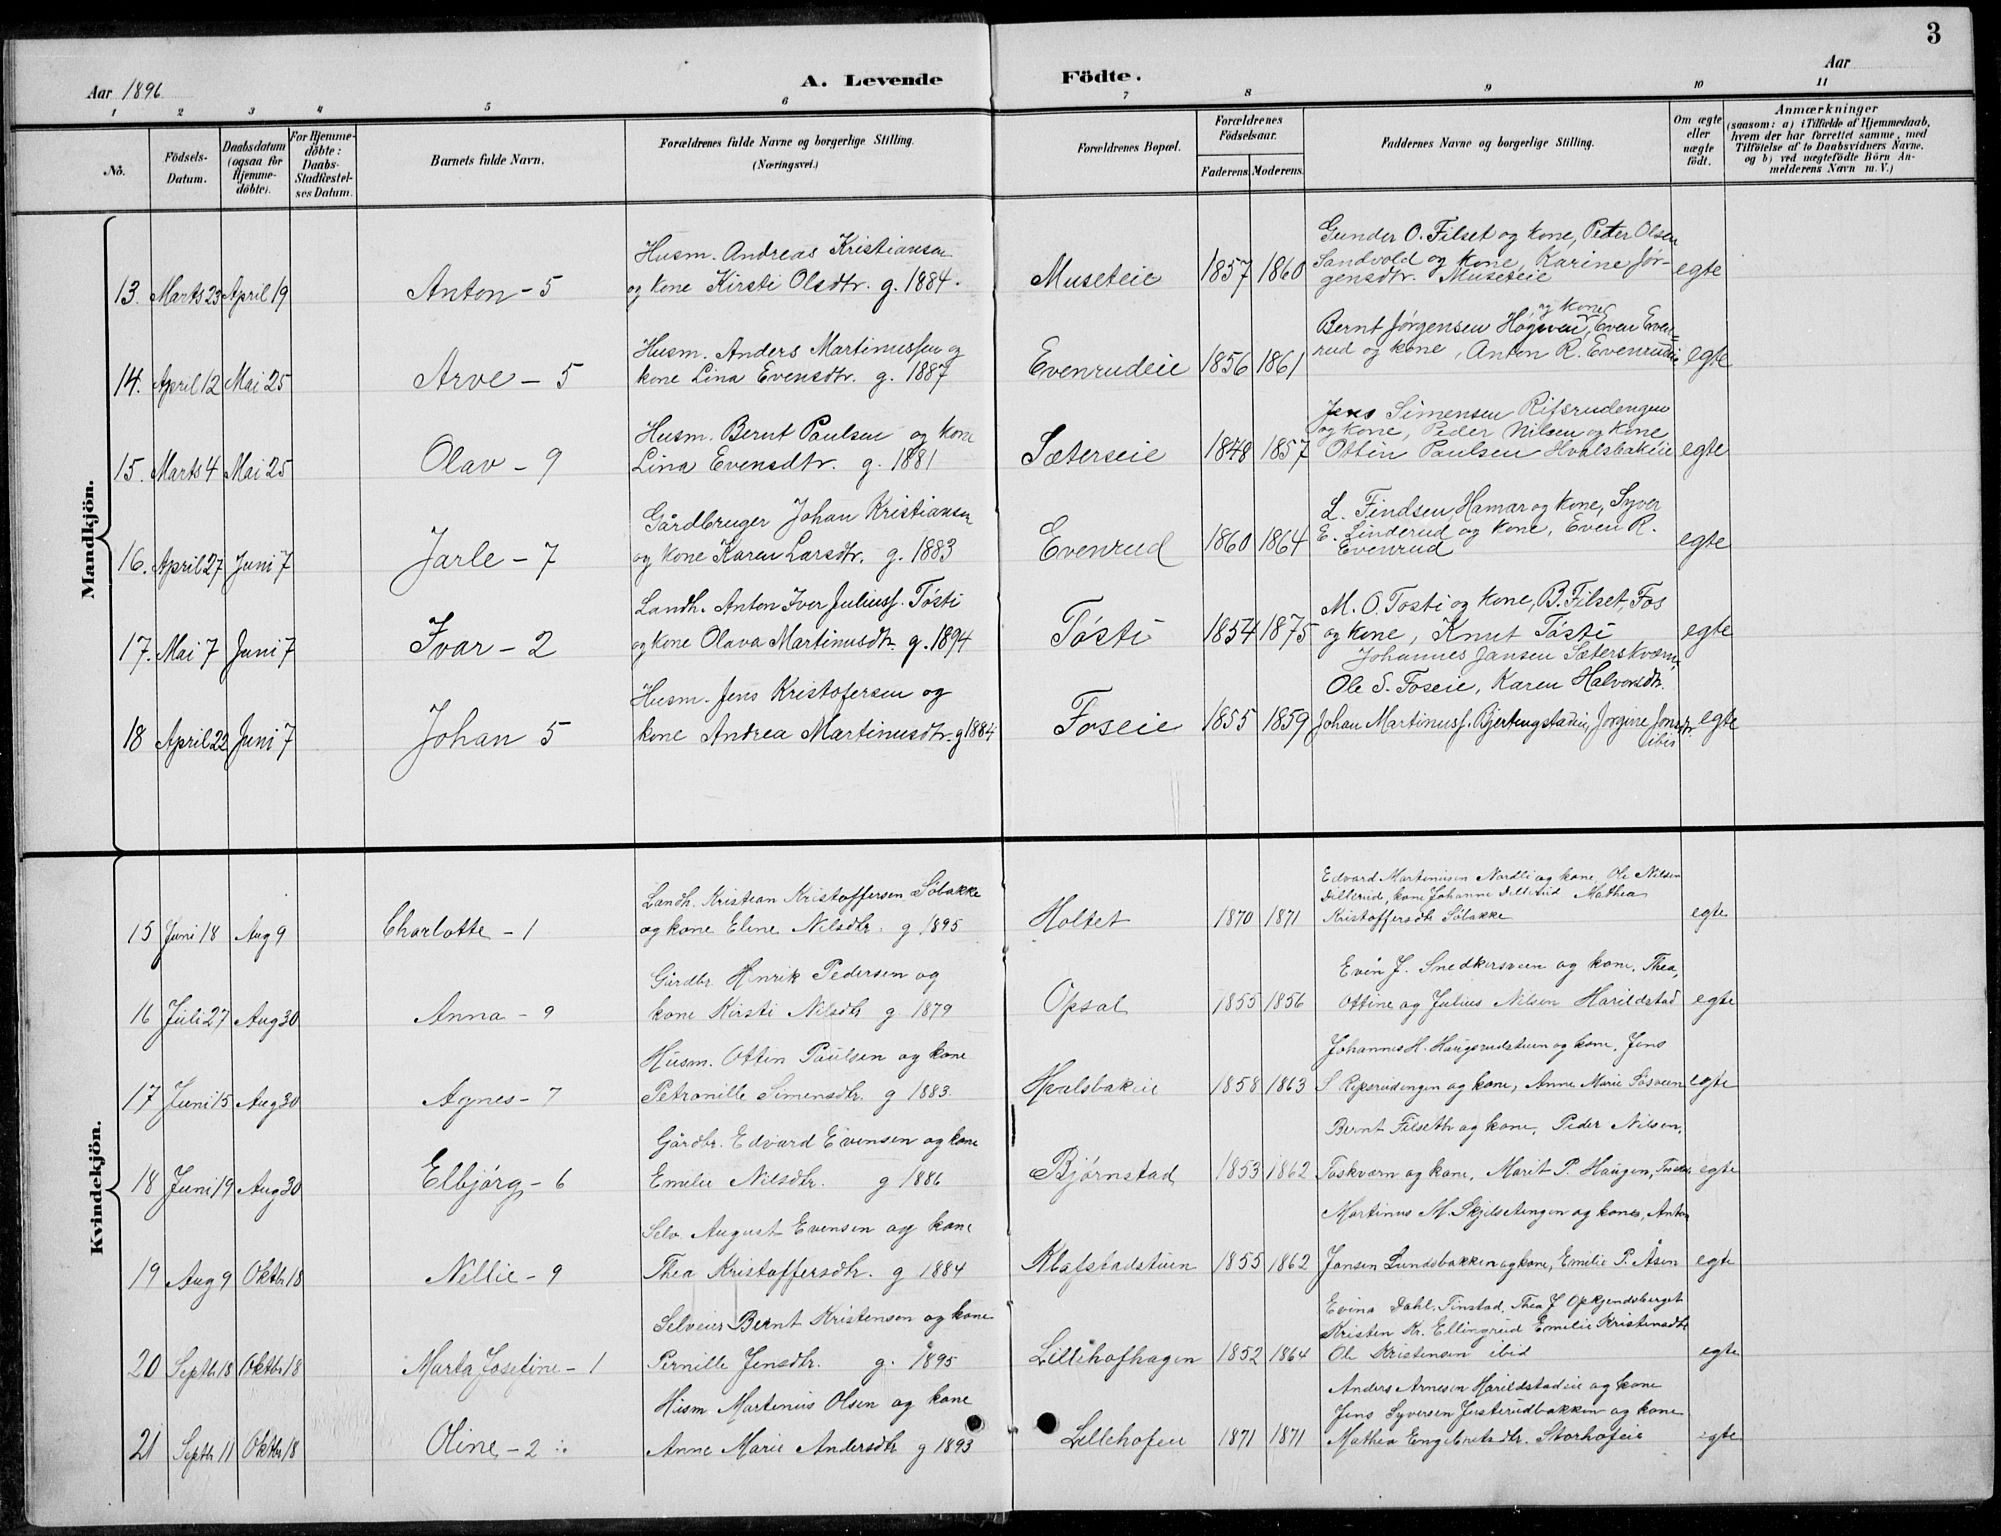 3
Aar 1896
A. Levende Födte.
Aar
1 2 3 4 5 6 7 8 9 10 11
No.
Födsels-Datum.
Daabsdatum (ogsaa for Hjemme-döbte).
For Hjemme-döbte: Daabs-Stadfæstel-ses Datum.
Barnets fulde Navn.
Forældrenes fulde Navne og borgerlige Stilling.
(Næringsvei.)
Forældrenes Bopæl.
Forældrenes Fødselsaar.
Faderens. Moderens.
Faddernes Navne og borgerlige Stilling.
Om ægte eller uægte født.
Anmærkninger
(saasom: a) i Tilfælde af Hjemmedaab,
hvem der har forrettet samme, med
Tilföielse af to Daabsvidners Navne,
og b) ved uægtefödte Börn An-
melderens Navn m. V.)
Mandkjön.
13. Marts 23 April 19 Anton - 5
Husm. Andreas Kristiansen
og kone Kirsti Olsdtr. g. 1884.
Museteie 1857 1860
Gunder O. Filset og kone, Peder Olsen
Sandvold og kone, Karine Jør-
gensdtr. Museteie
egte
14. April 12 Mai 25 Arve - 5
Husm. Anders Martinussen og
kone Lina Evensdtr. g. 1887
Evenrudeie 1856 1861
og kone
Bernt Jørgensen Høgveen, Even Even-
rud og kone, Anton R. Evenrudeie
egte
15. Marts 4 Mai 25 Olav - 9
Husm. Bernt Paulsen og kone
Lina Evensdtr. g. 1881
Sæterseie 1848 1857
Jens Simensen Rifsrudengen
og kone, Peder Nilsen og kone
Ottin Paulsen Hvalsbakeie
egte
16. April 27 Juni 7 Jarle - 7
Gårdbruger Johan Kristiansen
og kone Karen Larsdtr. g. 1883
Evenrud 1860 1864
L. Findsen Hamar og kone, Syver
E. Linderud og kone, Even R.
Evenrud
egte
17. Mai 7 Juni 7 Ivar - 2
Landh. Anton Iver Juliuss. Tøsti
og kone Olava Martinusdtr. g. 1894
Tøsti 1854 1875
M. O. Tosti og kone, B. Filset, Fos
og kone, Knut Tøsti
egte
18 April 22 Juni 7 Johan 5
Husm. Jens Kristofersen og
kone Andrea Martinusdtr. g 1884
Foseie 1855 1859
Johannes Jansen Sæterskværn,
Ole S. Foseie, Karen Halvorsdtr.
Johan Martinuss. Bjertngstadeie, Jorgine Jonsdtr.
ibid
egte
Kvindekjön.
15 Juni 18 Aug 9 Charlotte - 1
Landh. Kristian Kristoffersen Søbakke
og kone Eline Nilsdtr. g. 1895
Holtet 1870 1871
Edvard Martinusen Nordli og kone, Ole Nilsen
Dillerud, kone Johanne Dillerud Mathea
Kristoffersdtr Søbakke
egte
16 Juli 27 Aug 30 Anna - 9
Gårdbr. Henrik Pedersen og
kone Kirsti Nilsdtr g. 1879
Opsal 1855 1856
Even J. Snedkersveen og kone, Thea,
Ottine og Julius Nilsen Harildstad
egte
17 Juni 15 Aug 30 Agnes - 7
Husm. Ottin Paulsen og kone
Petronille Simensdtr. g 1883.
Hvalsbakeie 1858 1863
Johannes H. Haugsrudstuen og kone, Jens
S Ripsrudengen og kone, Anne Marie Søsveen
egte
18 Juni 19 Aug 30 Elbjørg - 6
Gårdbr. Edvard Evensen og kone
Emilie Nilsdtr. g 1886
Bjørnstad 1853 1862
Bernt Filseth og kone, Peder Nilsen,
Foskværn og kone, Marit P. Haugen,
egte
19 Aug 9 Oktbr 18 Nellie - 9
Selv. August Evensen og kone
Thea Kristoffersdtr. g 1884
Klafstadstuen 1855 1862
Martinus M. Skjelsetengen og kone, Anton
Jansen Lundsbakken og kone, Emilie P. Åsen
egte
20 Septbr 18 Oktbr 18 Marta Josefine - 1
Selveier Bernt Kristensen og kone
Pernille Jensdtr. g. 1895
Lillehofhagen 1852 1864
Evina Dahl, Finstad, Thea J Opkjendsberget
Kristen Kr. Ellingrud Emilie Kristensdtr
Ole Kristensen ibid
egte
21 Septbr 11 Oktbr 18 Oline - 2
Husm Martinius Olsen og kone
Anne Marie Andersdtr g 1893
Lillehofeie 1871 1871
Anders Arnesen Harildstadeie og kone
Jens Syversen Justerudbakken og kone
Mathea Engebretsdtr. Storhofeie
egte